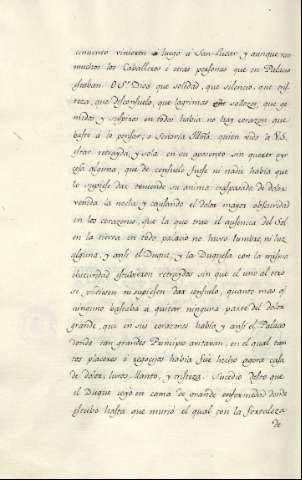 vinieron a luego a San Lucar y aunque eran
muchos los Caballeros è otras personas que en Palacio
estaban. O Sr. Dios que soledad, que silencio, que tris
teza, que desconsuelo, que lagrimas sollozos, que ge
midos y suspiros en todos habia no hay corazon que
baste à lo pensar, o Señoria Illma. quien vido a V.S.
estar retrayda y sola en su aposento sin querer oyr
cosa alguna, que de consuelo fuese ni nadie habia que
le supiese dar teniendo su anima traspasada de dolor
venida la noche y causando el dolor mayor obscuridad
en los corazones, que la que trae el ausencia del Sol
en la tierra en todo palacio no havia lumbre, ni luz
alguna, y ansi el Duque, y la Duquesa con la misma
obscuridad estuvieron retraydos sin que el uno al otro
se pudiesen ni supiesen dar consuelo, quanto mas q.
ninguno bastaba a quitar ninguna parte del dolor
grande, que en sus corazones habia y ansi el Palacio
donde tan grandes Principes estavan, en el qual tan
tos placeres è regocijos habia fue hecho agora casa
de dolor, lloros, llanto, y tristeza. Sucedio desto que
el Duque cayò en cama de grande enfermedad donde
estubo hasta que murio el qual con la fortaleza
de